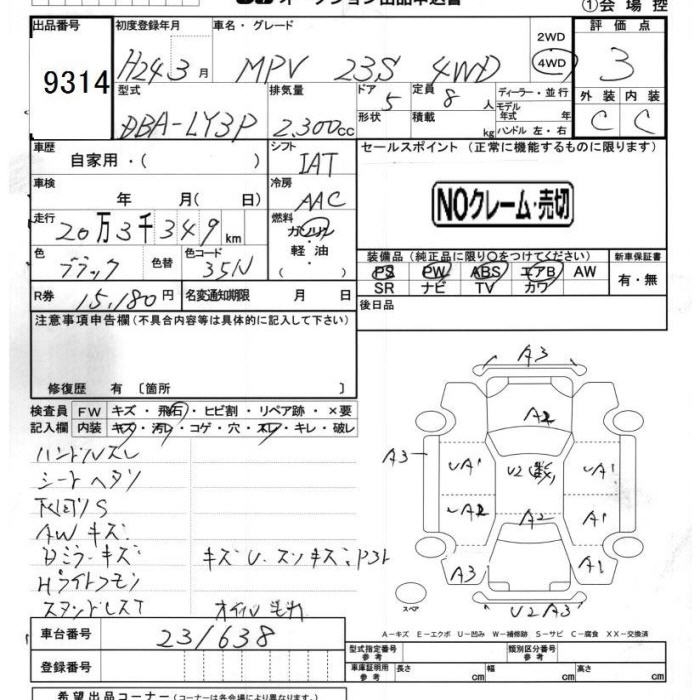 オークション出品申込書 ①会場控
出品番号 初度登録年月 車名・グレード 2WD 評価点
9314 H24 3月 MPV 23S 4WD 4WD 3
型式 排気量 ドア 定員 ディーラー・並行 外装 内装
DBA-LY3P 2,300cc 5 8人 モデル年式 年 C C
形状 積載 kg ハンドル 左・右
車歴 シフト セールスポイント (正常に機能するものに限ります)
自家用・( ) IAT
車検 冷房
年 月( 日) AAC NOクレーム・売切
走行 燃料
20万3千349km ガソリン
色 色替 色コード 軽油 装備品 (純正品に限り○をつけてください) 新車保証書
ブラック 35N ・( ) PS PW ABS エアB AW 有・無
SR ナビ TV カワ
R券 15,180円 名変通知期限 月 日 後日品
注意事項申告欄 (不具合内容等は具体的に記入して下さい)
修復歴 有 〔箇所 〕
検査員 FW キズ・飛石・ヒビ割・リペア跡・×要
記入欄 内装 キズ・汚レ・コゲ・穴・スレ・キレ・破レ
ハンドルスレ
シートヘタリ
下回りS
AWキズ
Dミラーキズ キズU.スリキズ、P3ト
Hライトクモリ
A3
A2
A3 UA1 U2 数 UA1
UA2 A2 A1
A3 A1
スペア U2A3
A-キズ E-エクボ U-凹み W-補修跡 S-サビ C-腐食 XX-交換済
車台番号 231638
登録番号
型式指定番号 参考 類別区分番号 参考
車庫証明用 参考 長さ cm 幅 cm 高さ cm
希望出品コーナー (コーナーは各会場により異なります。)